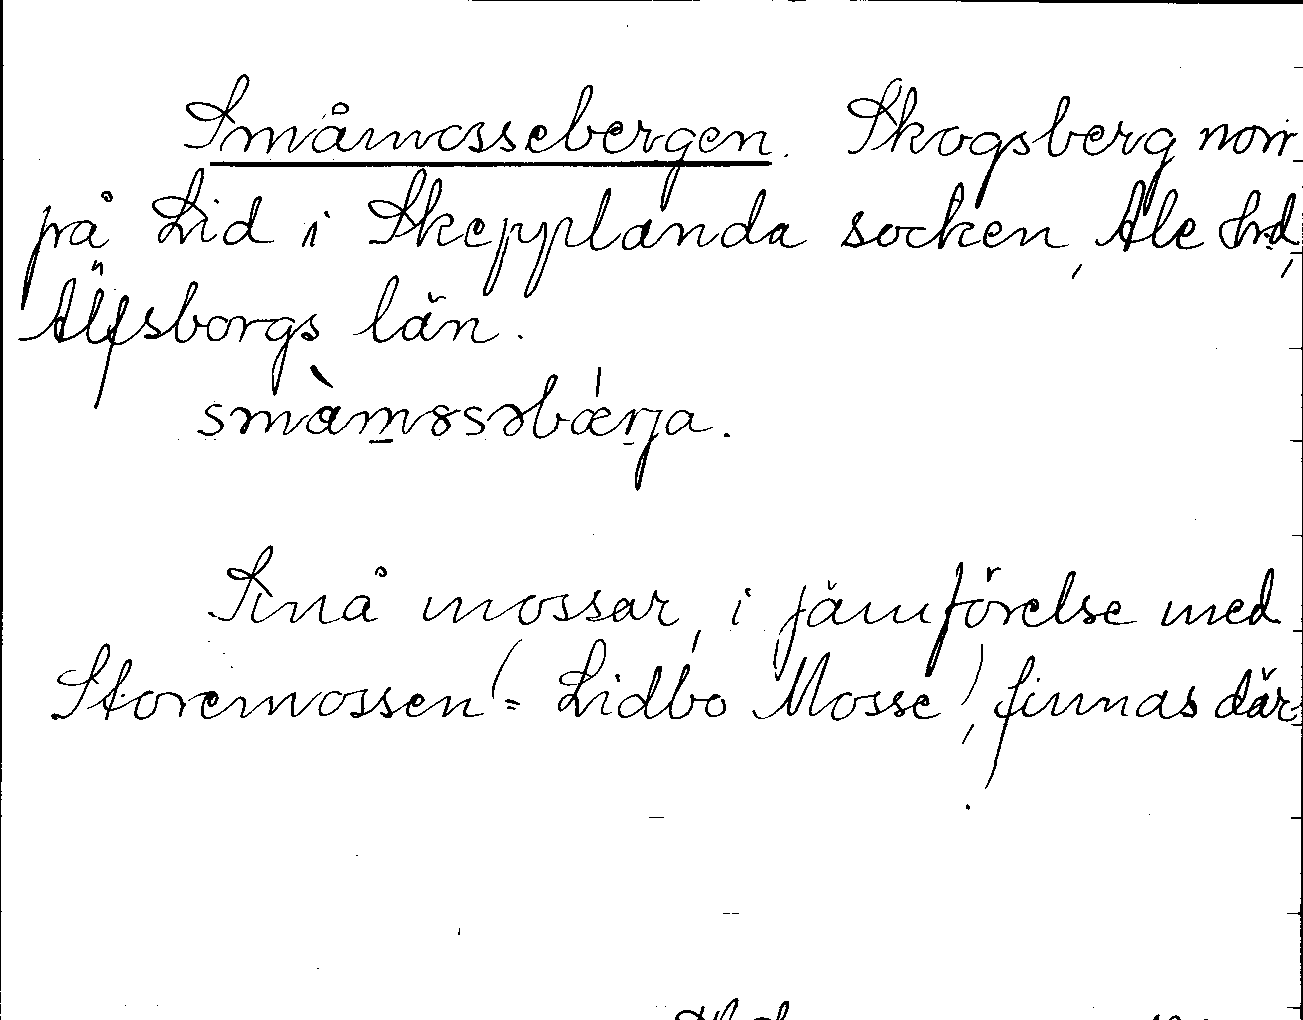 Småmossebergen. Skogsberg norr
på Lid i Skepplanda socken, Ale hd,
Älfsborgs län.
småmossəbærja.
Små mossar, i jämförelse med
Storemossen (= Lidbo Mosse), finnas där.